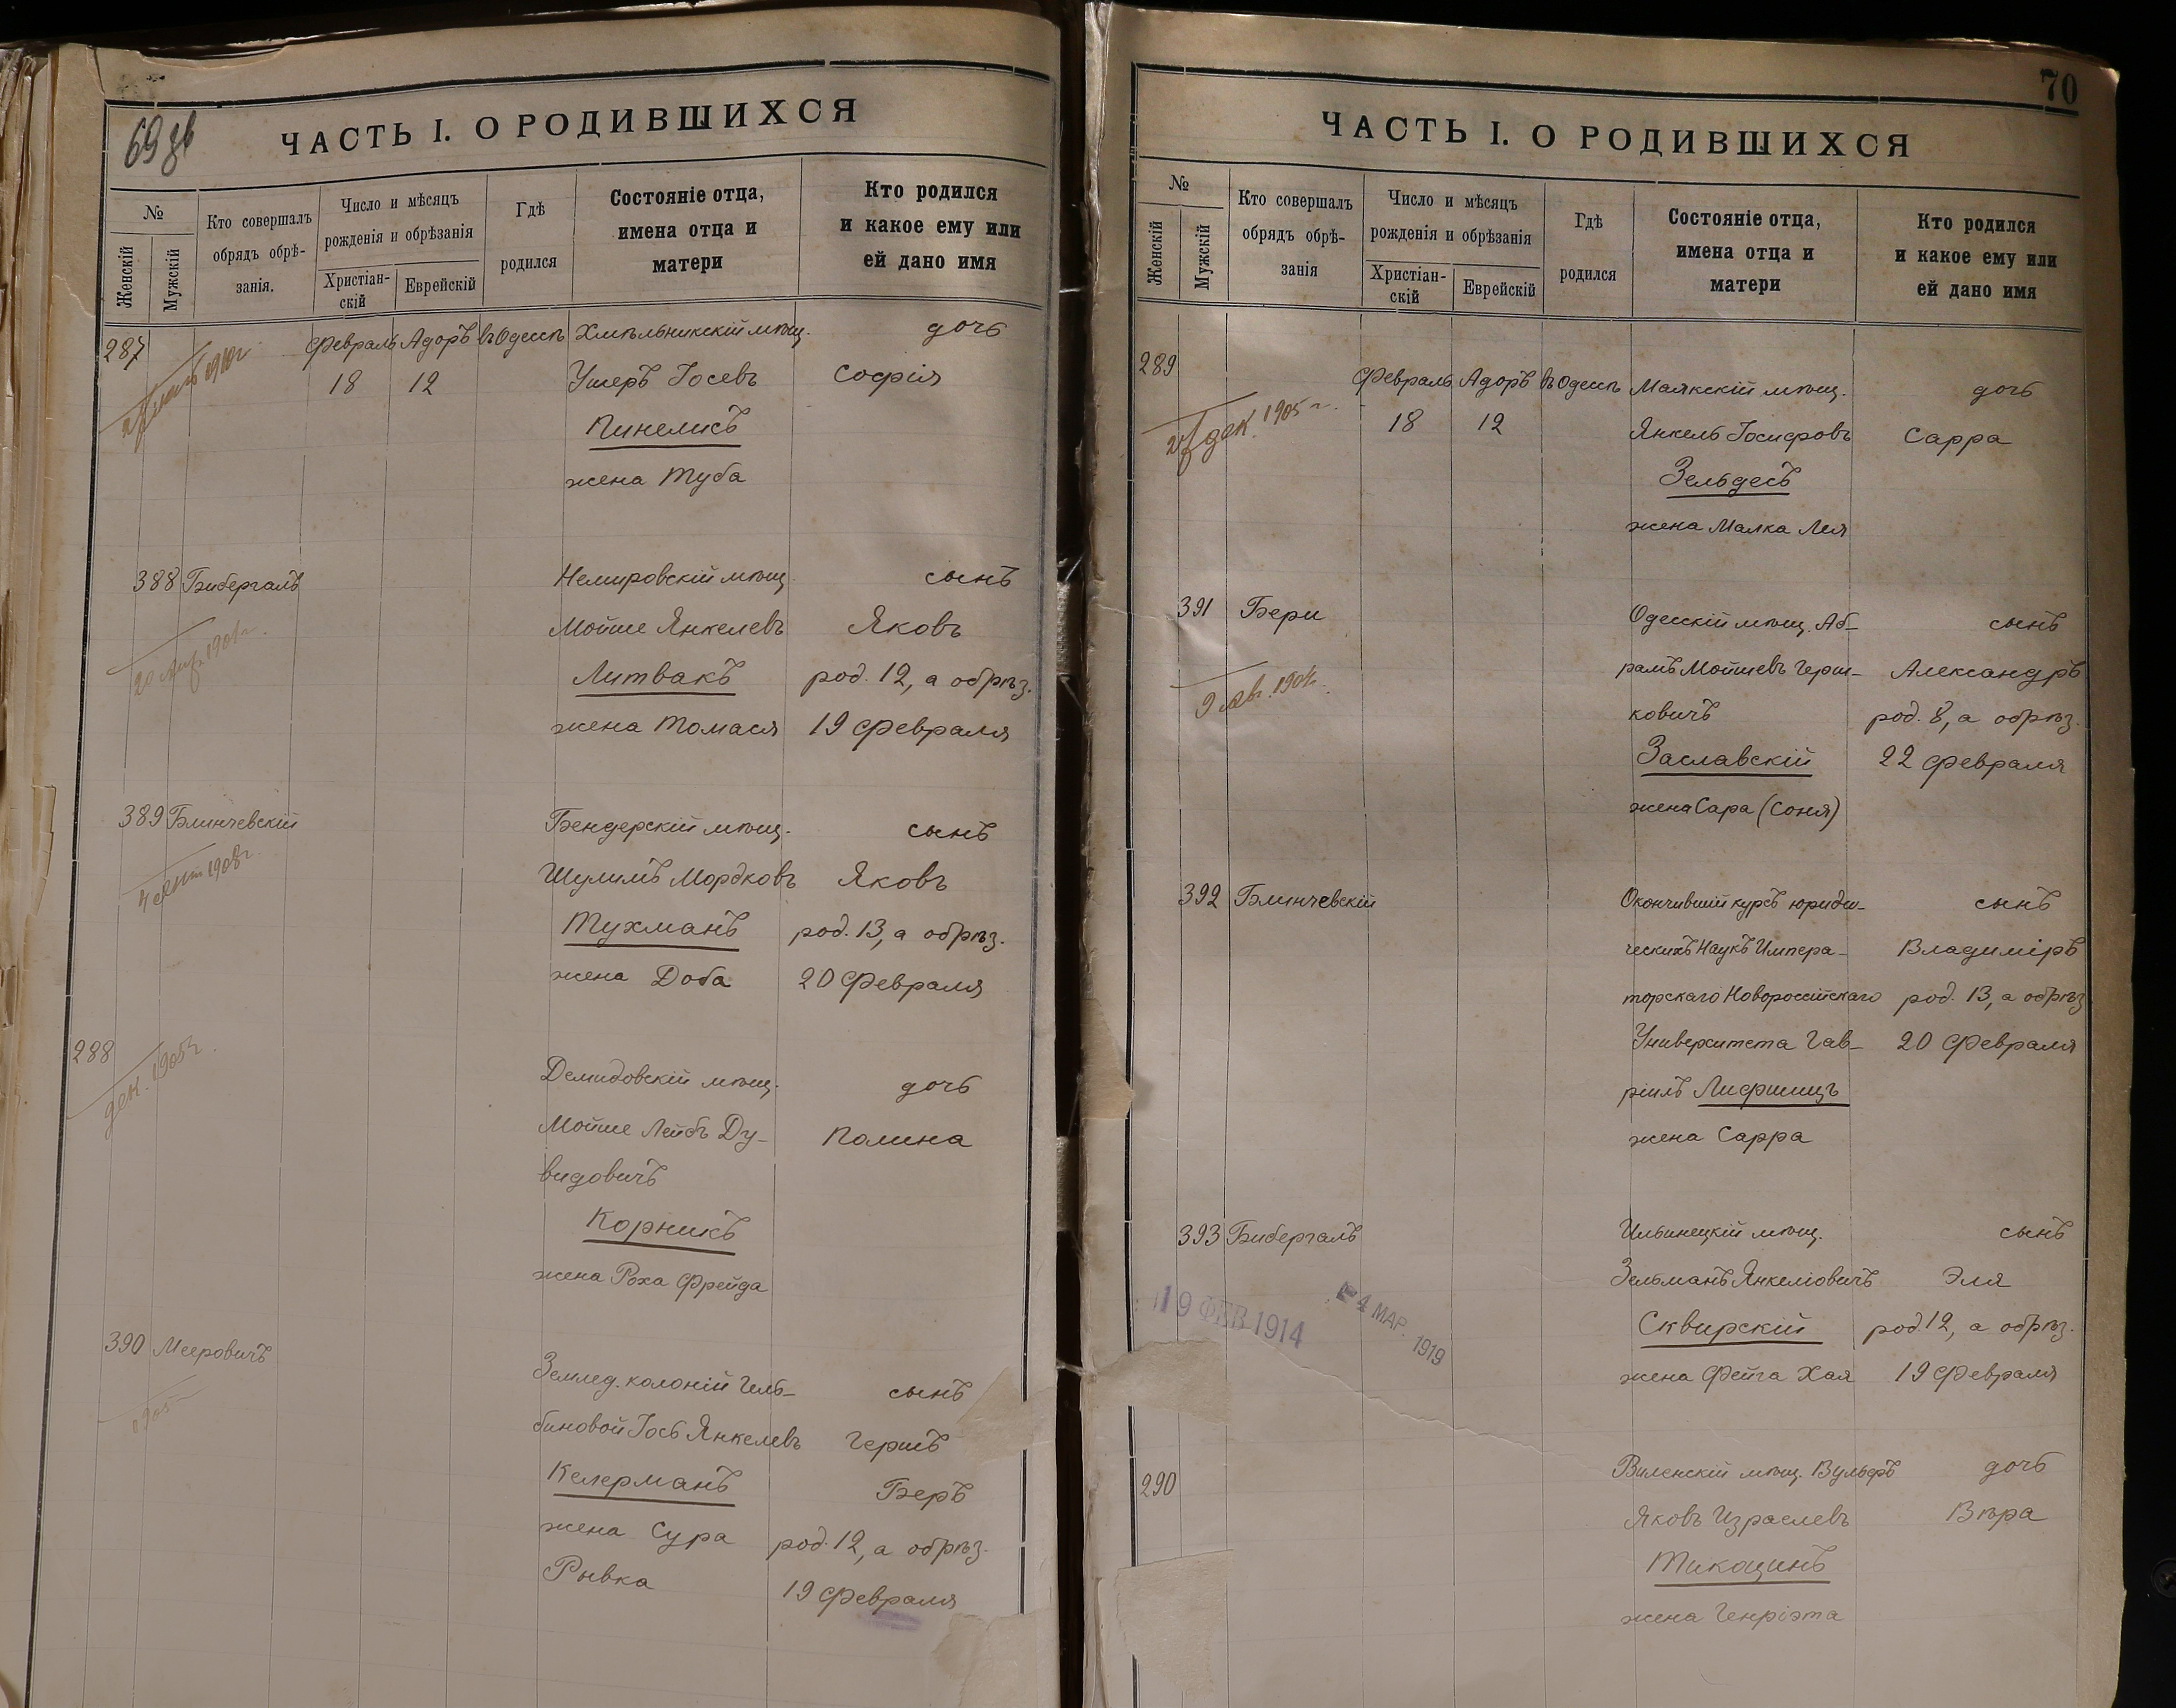 69 об
ЧАСТЬ I. О РОДИВШИХСЯ
№
Женскій
Мужскій
Кто совершалъ
обрядъ обрѣ-
занія.
Число и мѣсяцъ
рожденія и обрѣзанія
Христіан-
скій
Еврейскій
Гдѣ
родился
Состояніе отца,
имена отца и
матери
Кто родился
и какое ему или
ей дано имя
287 Февраль Адоръ въ Одессѣ Хмѣльникскій мѣщ. дочь
18 12 Ушеръ Іосевъ Софія
Пинелисъ
жена Туба
388 Бибергалъ Немировскій мѣщ. сынъ
Мойше Янкелевъ Яковъ
Литвакъ род. 12, а обрѣз.
жена Томася 19 Февраля
389 Блинчевскій Бендерскій мѣщ. сынъ
4 сент 1908 г.
Шулимъ Мордковъ Яковъ
Тухманъ род. 13, а обрѣз.
жена Доба 20 Февраля
288 Демидовскій мѣщ. дочь
дек. 1905 г.
Мойше Лейбъ Ду- Полина
видовичъ
Корникъ
жена Роха Фрейда
390 Мееровичъ Землед. колоній Гель- сынъ
1905
биновой Іось Янкелевъ Гершъ
Келерманъ Беръ
жена Сура род. 12, а обрѣз.
Рывка 19 Февраля
70
ЧАСТЬ I. О РОДИВШИХСЯ
№
Женскій
Мужскій
Кто совершалъ
обрядъ обрѣ-
занія
Число и мѣсяцъ
рожденія и обрѣзанія
Христіан-
скій
Еврейскій
Гдѣ
родился
Состояніе отца,
имена отца и
матери
Кто родился
и какое ему или
ей дано имя
289 Февраль Адоръ въ Одессѣ Маякскій мѣщ. дочь
дек. 1905 г.
18 12 Янкель Іосифовъ Сарра
Зельдесъ
жена Малка Лея
391 Бери Одесскій мѣщ. Аб- сынъ
рамъ Мойшевъ Герш- Александръ
9 авг. 1904 г.
ковичъ род. 8, а обрѣз.
Заславскій 22 Февраля
жена Сара (Соня)
392 Блинчевскій Окончившій курсъ юриди- сынъ
ческихъ Наукъ Импера- Владиміръ
торскаго Новороссійскаго род. 13, а обрѣз
Университета Гав- 20 Февраля
ріилъ Лифшицъ
жена Сарра
393 Бибергалъ Ильинецкій мѣщ. сынъ
Зельманъ Янкеліовичъ Эля
19 ФЕВ 1914
4 МАР. 1919
Сквирскій род. 12, а обрѣз.
жена Фейга Хая 19 Февраля
290 Виленскій мѣщ. Вульфъ дочь
Яковъ Израелевъ Вѣра
Тикоцинъ
жена Генріэта